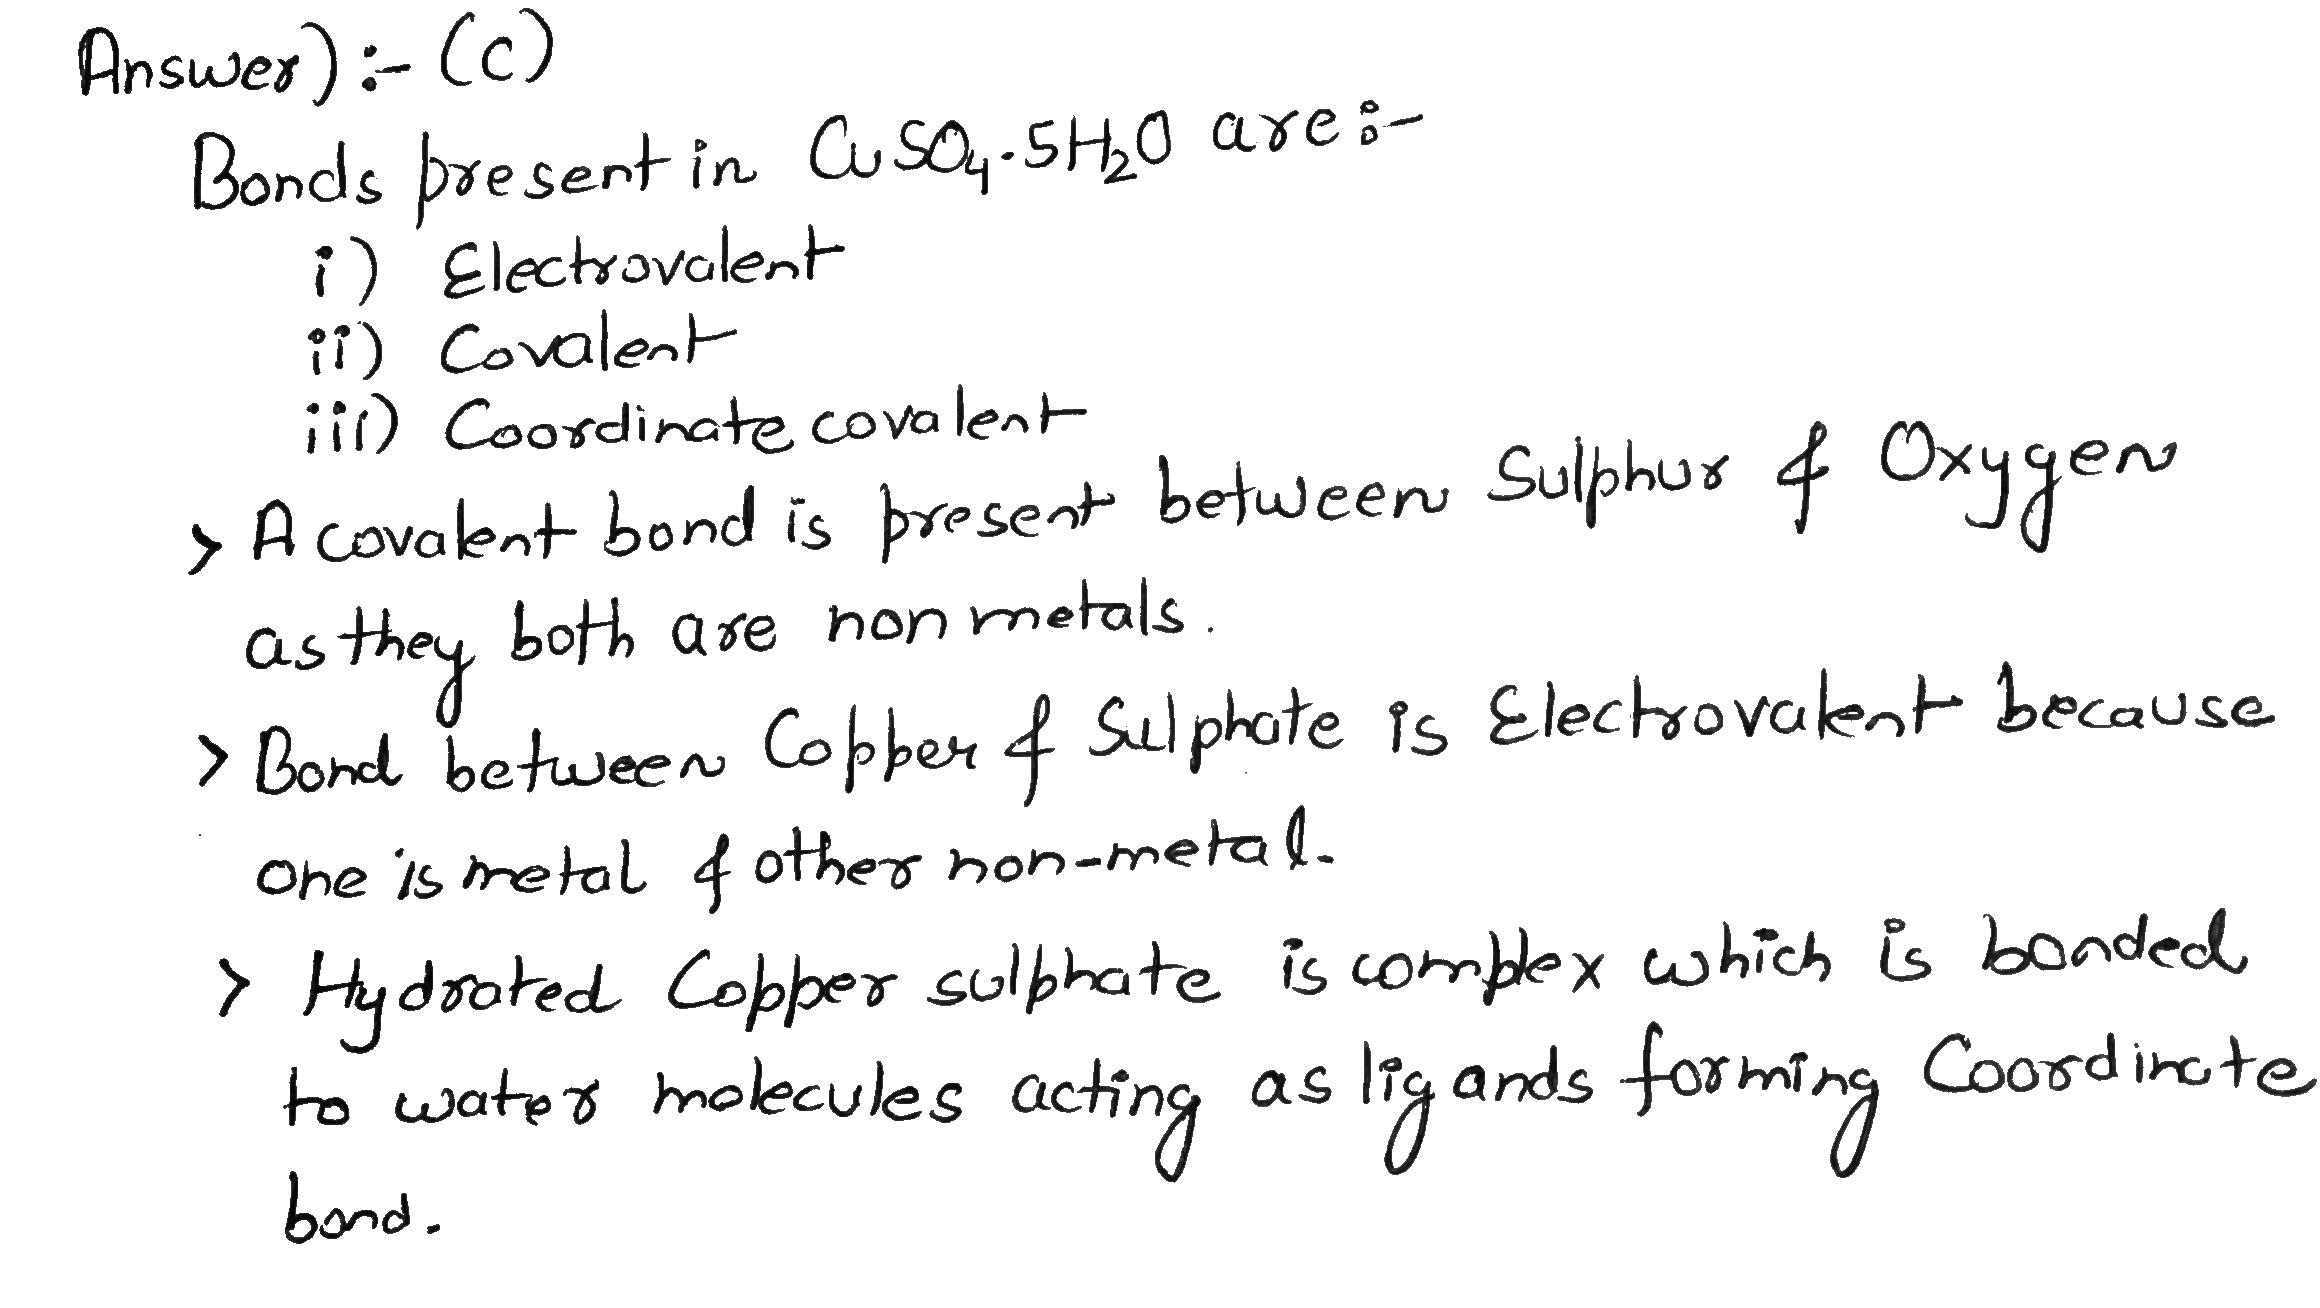 Answer) :- (C)
Bonds present in CuSO₄.5H₂O are :-
i) Electrovalent
ii) Covalent
iii) Coordinate covalent
> A covalent bond is present between Sulphur & Oxygen
as they both are non metals.
> Bond between Copper & Sulphate is Electrovalent because
one is metal & other non-metal.
> Hydrated Copper sulphate is complex which is bonded
to water molecules acting as ligands forming Coordinate
bond.